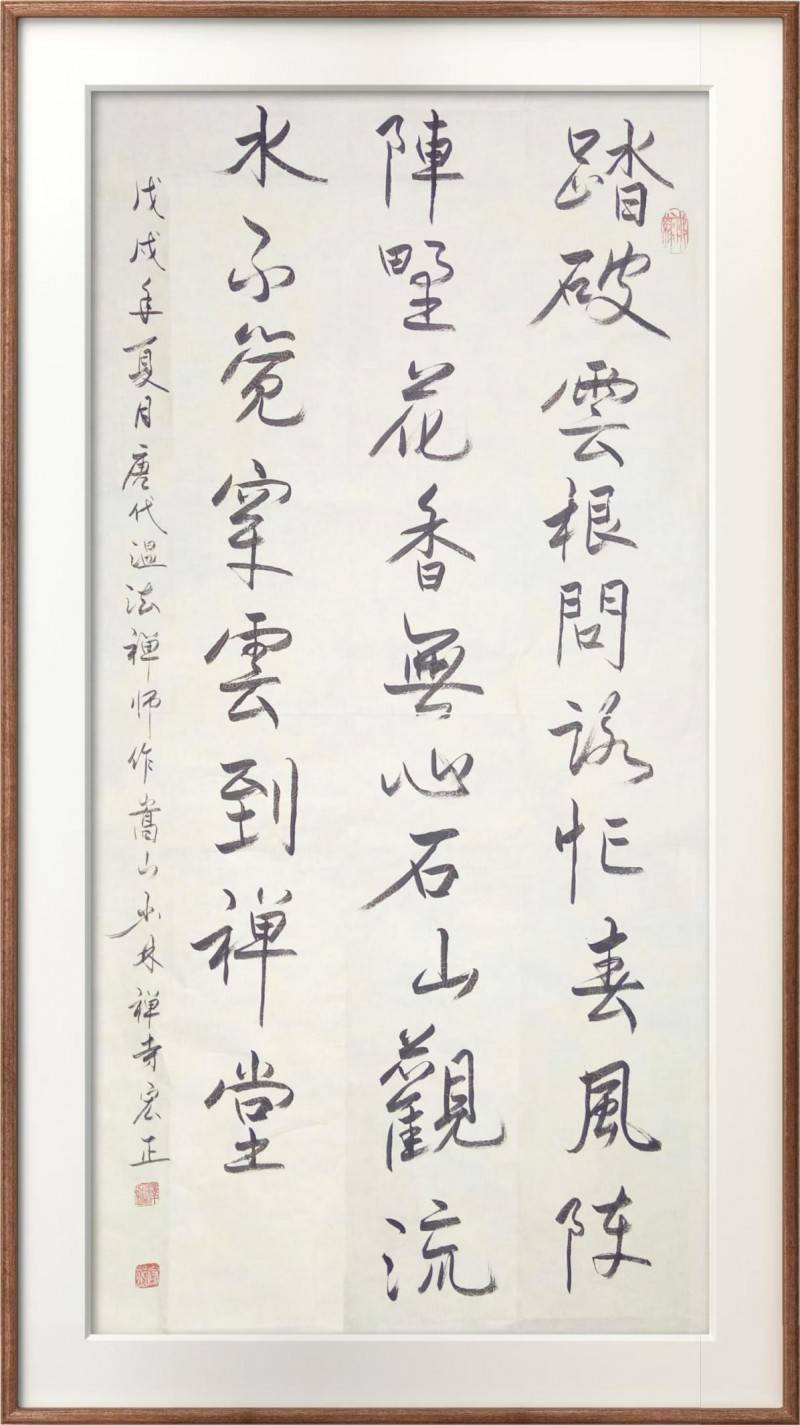 踏破雲根問路忙春風陣
陣野花香無心石山觀流
水不覺穿雲到禪堂
戊戌年夏月唐代温法禅师作嵩山少林禅寺宏正